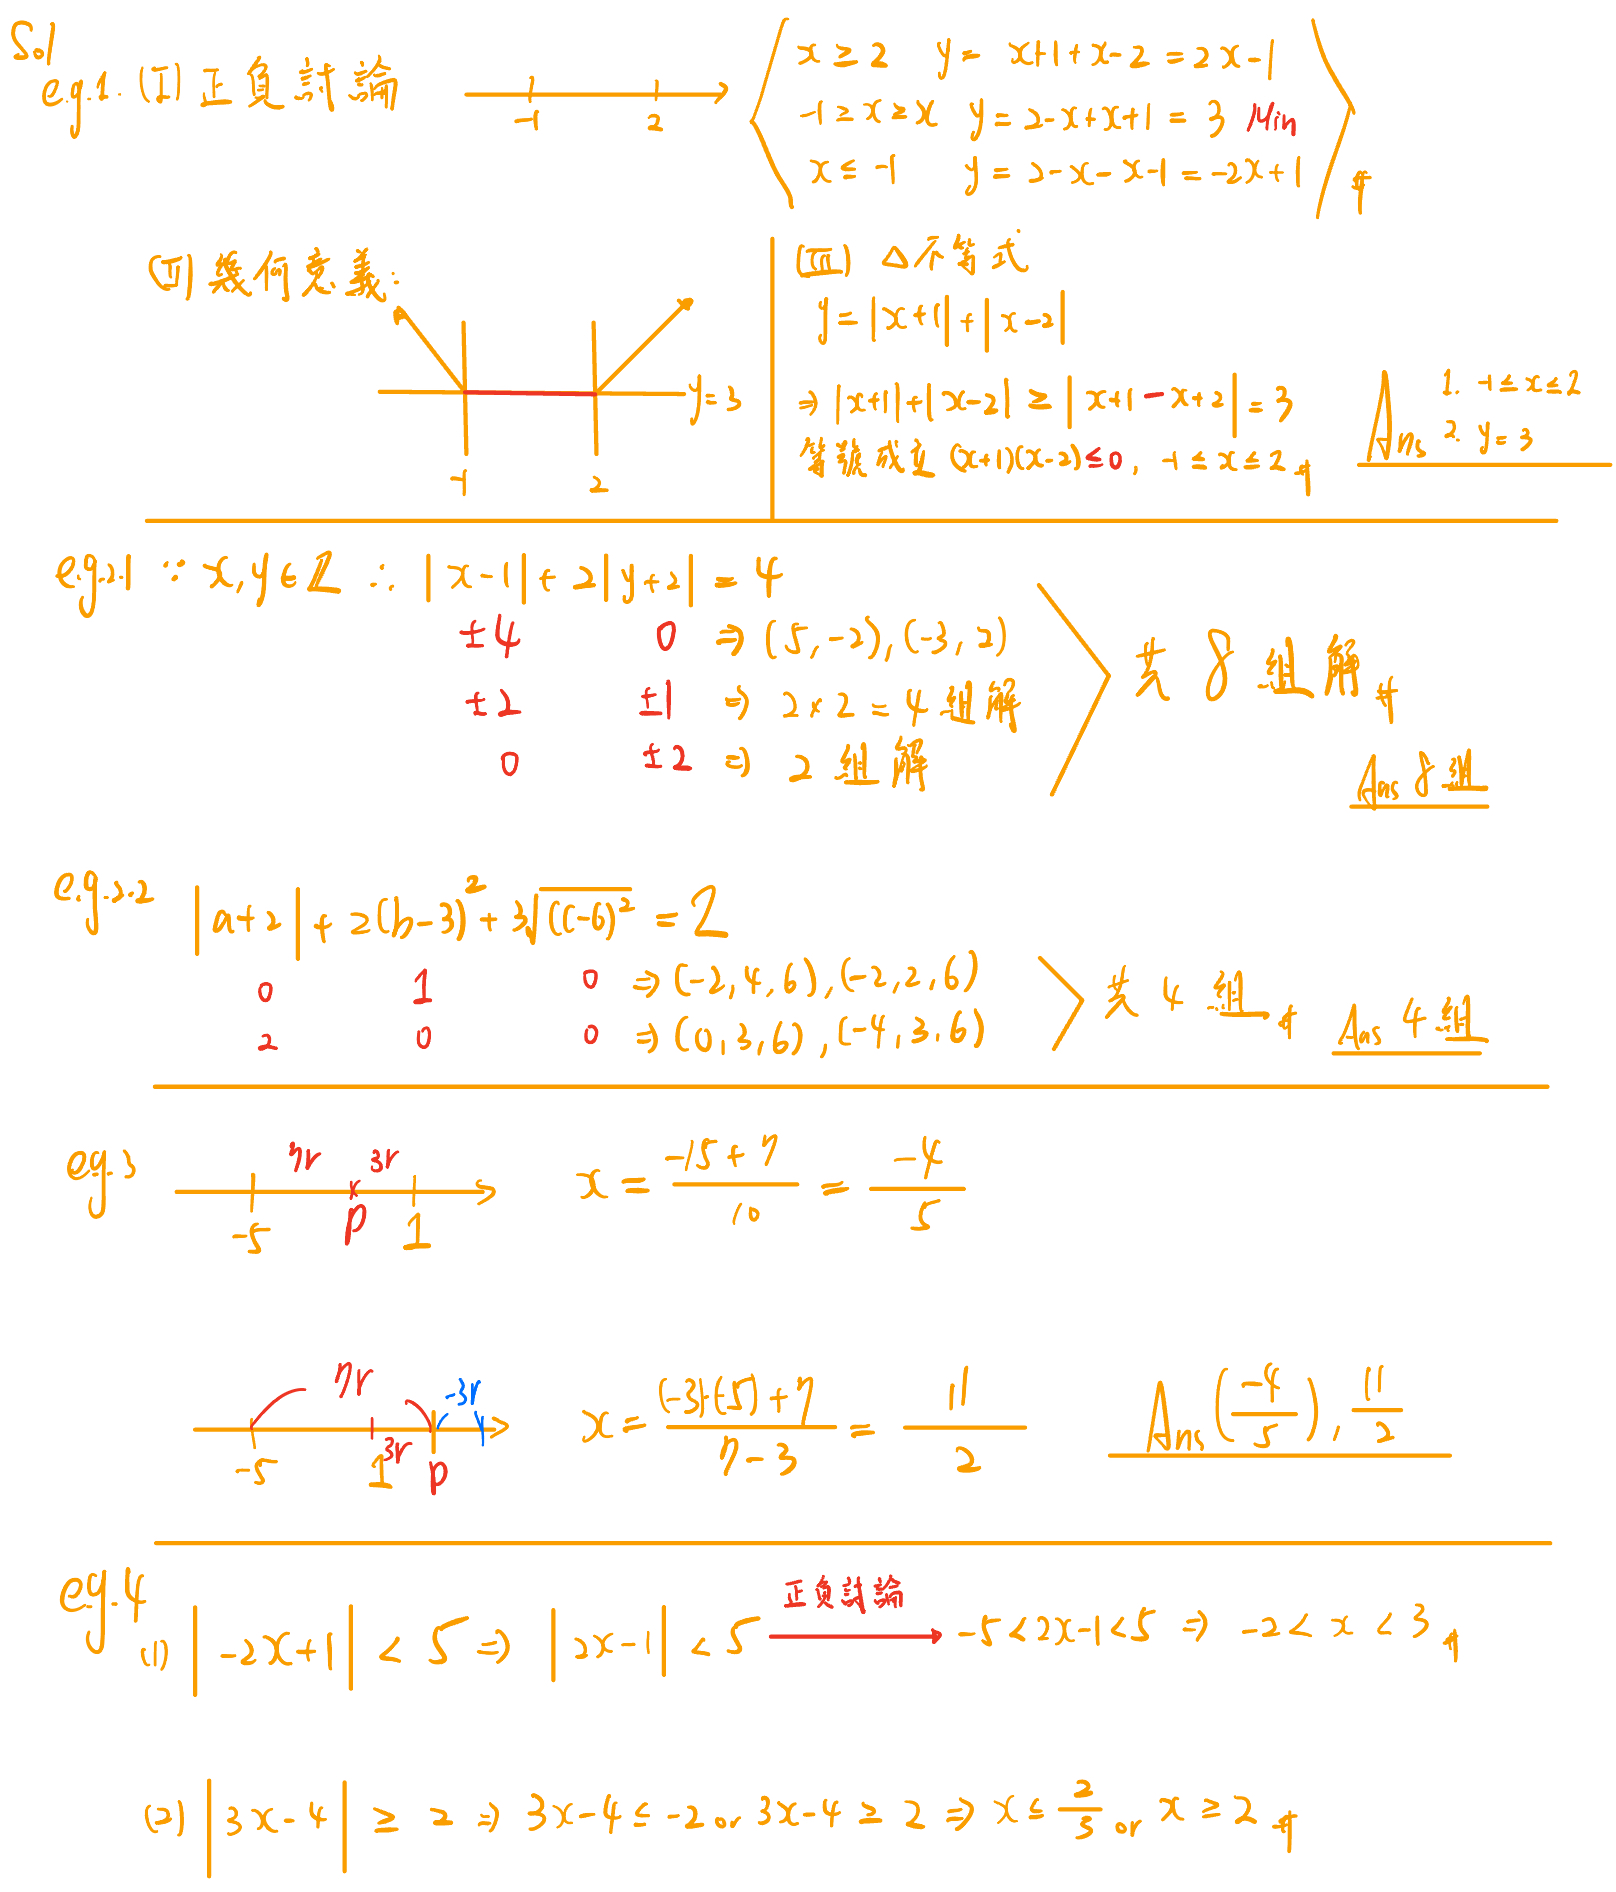 Sol
e.g.1. (I) 正負討論
-1 2
x ≥ 2 y = x+1+x-2 = 2x-1
-1 ≥ x ≥ x y = 2-x+x+1 = 3 Min
x ≤ -1 y = 2-x-x-1 = -2x+1 #
(II) 幾何意義:
y=3
-1 2
(III) △不等式
y = |x+1|+|x-2|
⇒ |x+1|+|x-2| ≥ |x+1-x+2| = 3
等號成立 (x+1)(x-2)≤0, -1 ≤ x ≤ 2 #
Ans 1. -1≤x≤2
2. y=3
e.g.2.1 ∵ x,y∈Z ∴ |x-1|+2|y+2| = 4
±4 0 ⇒ (5,-2),(-3,2)
±2 ±1 ⇒ 2×2=4組解
0 ±2 ⇒ 2組解
共8組解 #
Ans 8組
e.g.2.2 |a+2|+2(b-3)²+3√((c-6)²) = 2
0 1 0 ⇒ (-2,4,6),(-2,2,6)
2 0 0 ⇒ (0,3,6),(-4,3,6)
共4組 #
Ans 4組
eg.3 7r 3r
-5 P 1
x = (-15+7)/10 = -4/5
7r -3r
-5 1 3r P
x = ((-3)(-5)+7)/(7-3) = 11/2
Ans (-4/5), 11/2
eg.4
(1) |-2x+1| < 5 ⇒ |2x-1| < 5 正負討論 → -5<2x-1<5 ⇒ -2 < x < 3 #
(2) |3x-4| ≥ 2 ⇒ 3x-4 ≤ -2 or 3x-4 ≥ 2 ⇒ x ≤ 2/3 or x ≥ 2 #